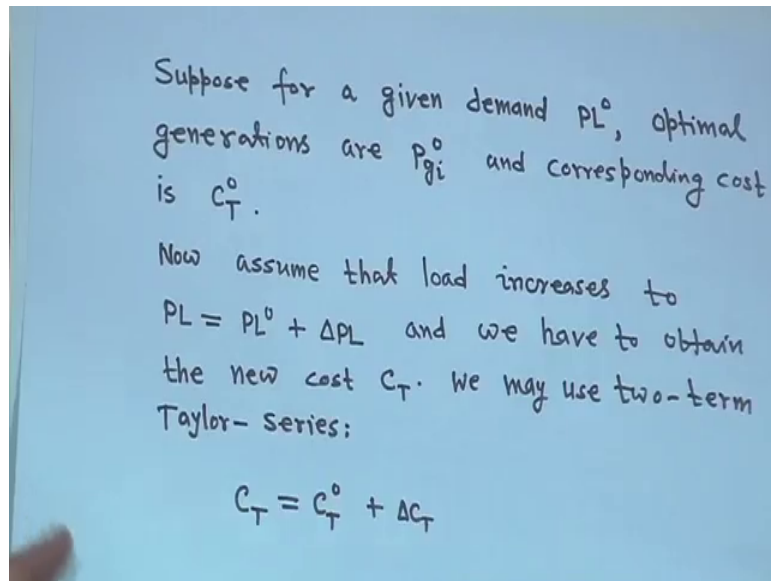 Suppose for a given demand PL⁰, optimal
generations are Pgi⁰ and corresponding cost
is C_T⁰.
Now assume that load increases to
PL = PL⁰ + ΔPL and we have to obtain
the new cost C_T. We may use two-term
Taylor-series:
C_T = C_T⁰ + ΔC_T